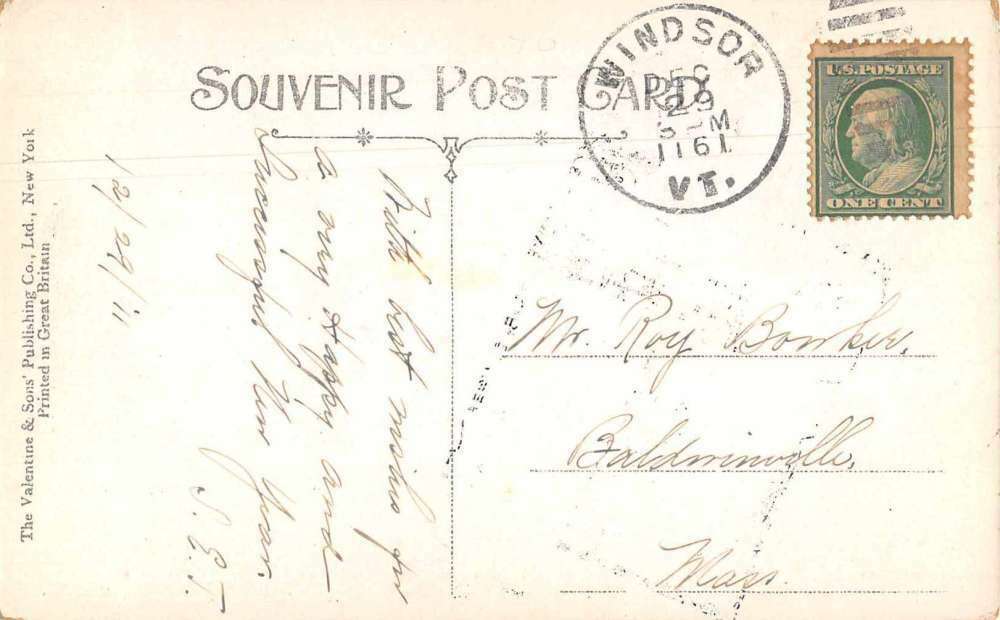 SOUVENIR POST CARD
WINDSOR
DEC
29
M
1911
VT.
U.S. POSTAGE
ONE CENT
The Valentine & Sons' Publishing Co., Ltd., New York
Printed in Great Britain
12/29/11
With best wishes for
a very Happy and
New Year.
S. E. T.
Mr. Roy Bowker,
Baldwinville,
Mass.